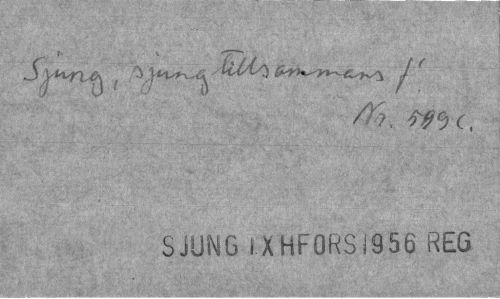 Sjung, sjung tillsammans!
Nr. 599c.
SJUNG IXHFORS1956 REG